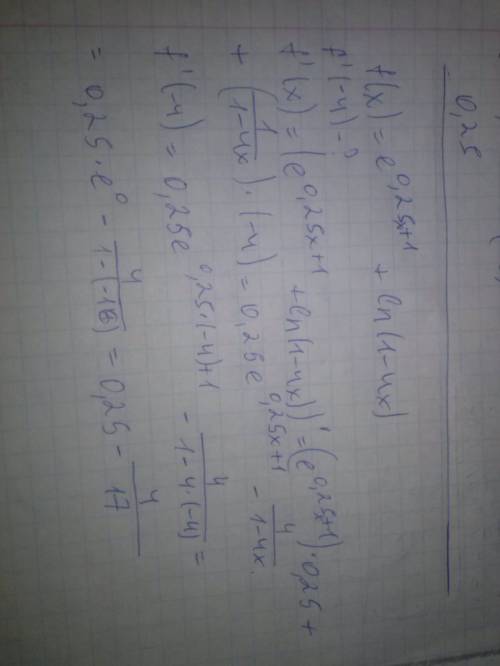 0,25
f(x) = e^{0,25x+1} + ln(1-4x)
f'(-4) - ?
f'(x) = (e^{0,25x+1} + ln(1-4x))' = (e^{0,25x+1}) · 0,25 +
+ (\frac{1}{1-4x}) · (-4) = 0,25e^{0,25x+1} - \frac{4}{1-4x}.
f'(-4) = 0,25e^{0,25·(-4)+1} - \frac{4}{1-4·(-4)} =
= 0,25·e^{0} - \frac{4}{1-(-16)} = 0,25 - \frac{4}{17}